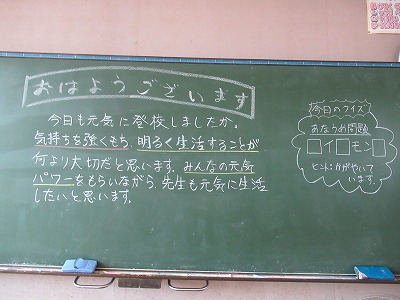 おはようございます
今日も元気に登校しましたか。
気持ちを強くもち、明るく生活することが
何より大切だと思います。みんなの元気
パワーをもらいながら、先生も元気に生活
したいと思います。
今日のクイズ
あなうめ問題
□イ□モン□
ヒント：かがやいて
います。